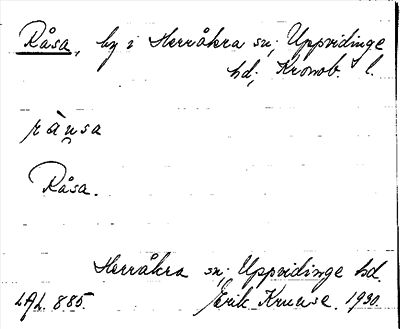 Råsa, by i Herråkra sn; Uppvidinge
hd; Kronob. l.
Råsa.
Herråkra sn; Uppvidinge hd.
LAL. 885. Erik Kruuse. 1930.